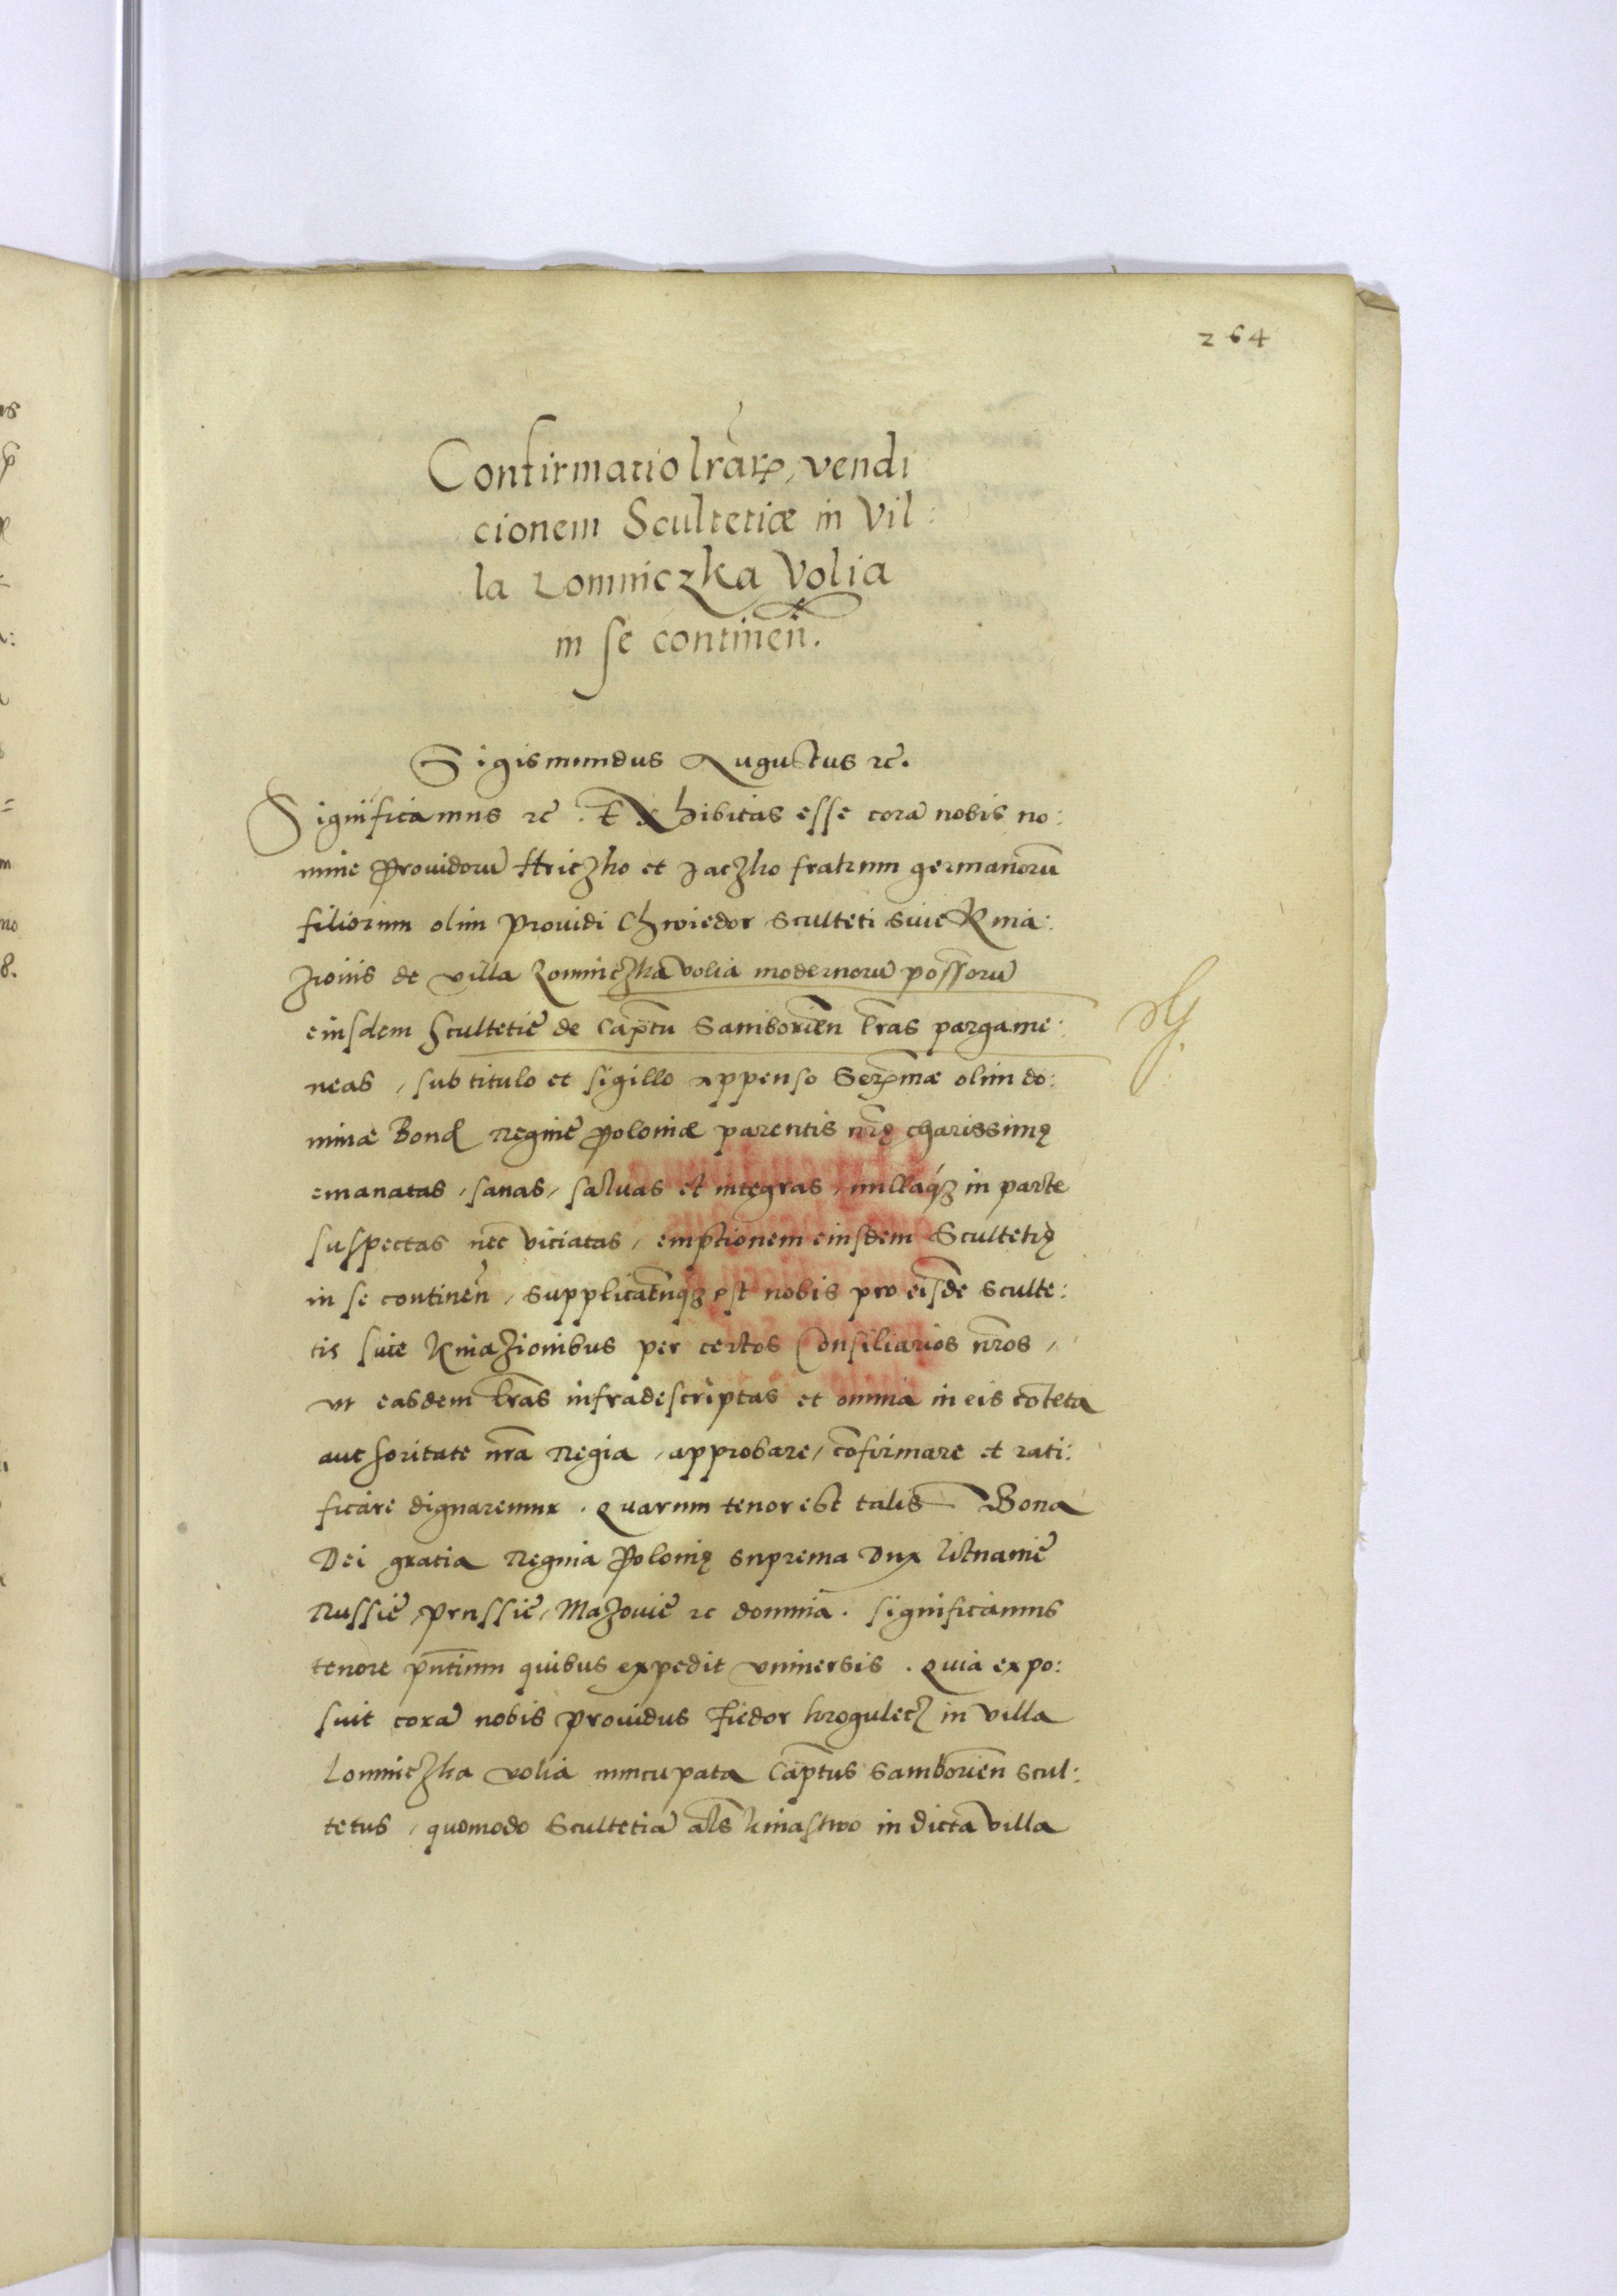 264
Confirmatio lrarꝝ, vendi
cionem Scultetiæ in Vil:
la Lomniczka Volia
in se continen̄.
Sigismundus Augustus ꝛc̄.
Significamus ꝛc̄. Exhibitas esse corā nobis no:
mine prouidorū Hriczko et Jaczko fratrum germanorū
filiorum olim prouidi Chwiedor Sculteti siue Knia:
zionis de villa Lomniczka volia modernorū possorū
eiusdem Scultetię de Captu Samborien̄ lr̄as pargame:
neas, sub titulo et sigillo appenso Serꝫmæ olim do:
minæ Bonę Reginę Poloniæ parentis nr̄ę charissimę
emanatas, sanas, saluas et integras, nullaqꝫ in parte
suspectas nec viciatas, emptionem eiusdem Scultetię
in se continen̄, supplicatumqꝫ est nobis pro eisdē sculte:
tis siue Kniazionibus per certos Consiliarios nr̄os,
vt easdem lr̄as infradescriptas et omnia in eis cōteta
authoritate nr̄a Regia, approbare, cōfirmare et rati:
ficare dignaremur. Quarum tenor est talis Bona
Dei gratia Regina Polonię suprema Dux Lituanię
Russię, Prussię, Mazouię ꝛc domina. Significamus
tenore pn̄tium quibus expedit vniuersis. Quia expo:
suit corā nobis prouidus Fiedor krogulecz in villa
Lomniczka volia nuncupata Captus Samborien̄ scul:
tetus, quomodo Scultetiā al̄s kniastwo in dicta villa